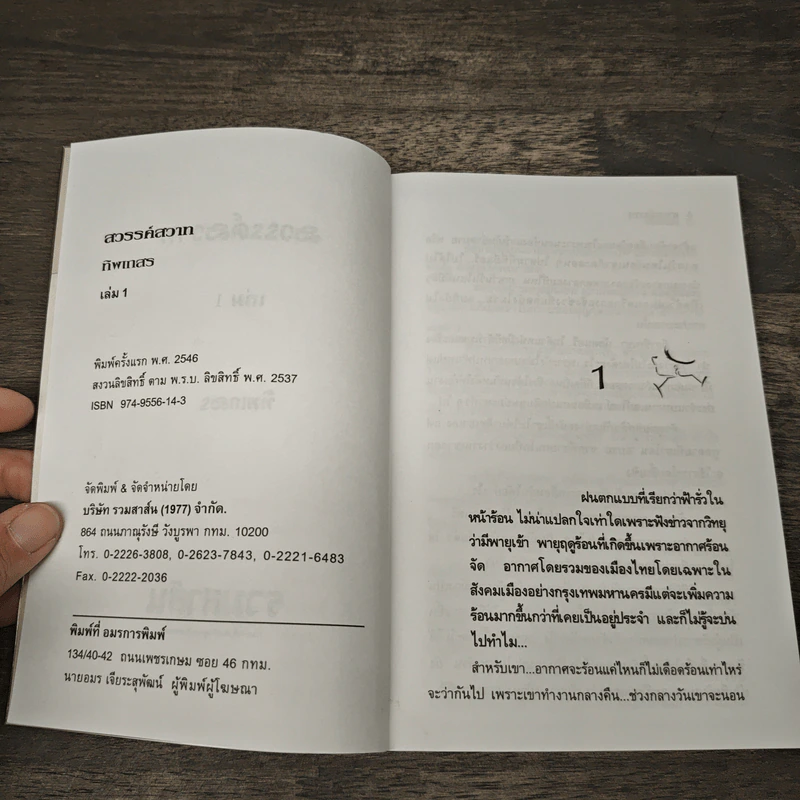 สวรรค์สวาท
ทิพเกสร
เล่ม 1
พิมพ์ครั้งแรก พ.ศ. 2546
สงวนลิขสิทธิ์ ตาม พ.ร.บ. ลิขสิทธิ์ พ.ศ. 2537
ISBN 974-9556-14-3
จัดพิมพ์ & จัดจำหน่ายโดย
บริษัท รวมสาส์น (1977) จำกัด.
864 ถนนภาณุรังษี วังบูรพา กทม. 10200
โทร. 0-2226-3808, 0-2623-7843, 0-2221-6483
Fax. 0-2222-2036
พิมพ์ที่ อมรการพิมพ์
134/40-42 ถนนเพชรเกษม ซอย 46 กทม.
นายอมร เจียระสุพัฒน์ ผู้พิมพ์ผู้โฆษณา
1
ฝนตกแบบที่เรียกว่าฟ้ารั่วใน
หน้าร้อน ไม่น่าแปลกใจเท่าใดเพราะฟังข่าวจากวิทยุ
ว่ามีพายุเข้า พายุฤดูร้อนที่เกิดขึ้นเพราะอากาศร้อน
จัด อากาศโดยรวมของเมืองไทยโดยเฉพาะใน
สังคมเมืองอย่างกรุงเทพมหานครมีแต่จะเพิ่มความ
ร้อนมากขึ้นกว่าที่เคยเป็นอยู่ประจำ และก็ไม่รู้จะบ่น
ไปทำไม...
สำหรับเขา...อากาศจะร้อนแค่ไหนก็ไม่เดือดร้อนเท่าไหร่
จะว่ากันไป เพราะเขาทำงานกลางคืน...ช่วงกลางวันเขาจะนอน